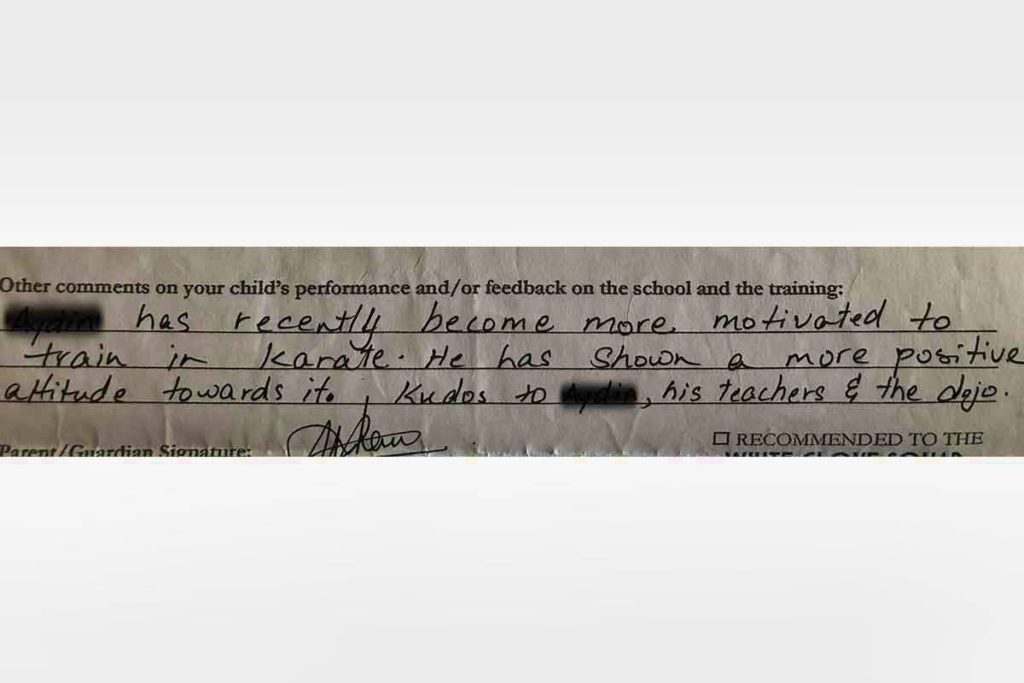 Other comments on your child's performance and/or feedback on the school and the training:
has recently become more motivated to
train in karate. He has shown a more positive
attitude towards it. Kudos to , his teachers & the dojo.
Parent/Guardian Signature:
☐ RECOMMENDED TO THE